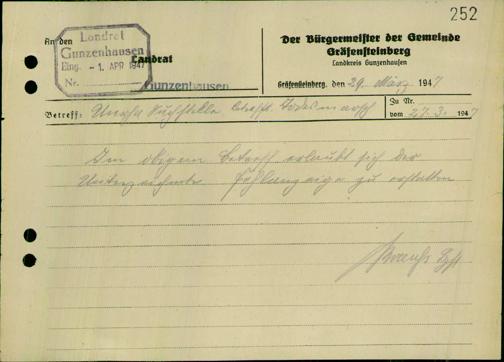 252
An den
Landrat
Gunzenhausen
Landrat
Gunzenhausen
Eing. - 1. APR 1947
Nr.
Der Bürgermeister der Gemeinde
Gräfensteinberg
Landkreis Gunzenhausen
Gräfensteinberg, den 29. März 1947
Betreff: Unrra Suchstelle betreff. Todesmarsch
Zu Nr.
vom 27.3. 1947
Im obigem Betreff erlaubt sich der
Unterzeichnete Fehlanzeige zu erstatten